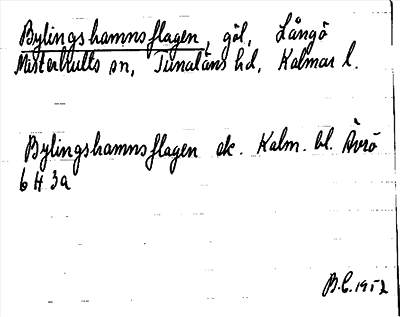 Bylingshamnsflagen, göl, Långö
Misterhults sn, Tunaläns hd, Kalmar l.
Bylingshamnsflagen ek. Kalm. bl. Ävrö
6 H 3a
B.C. 1952